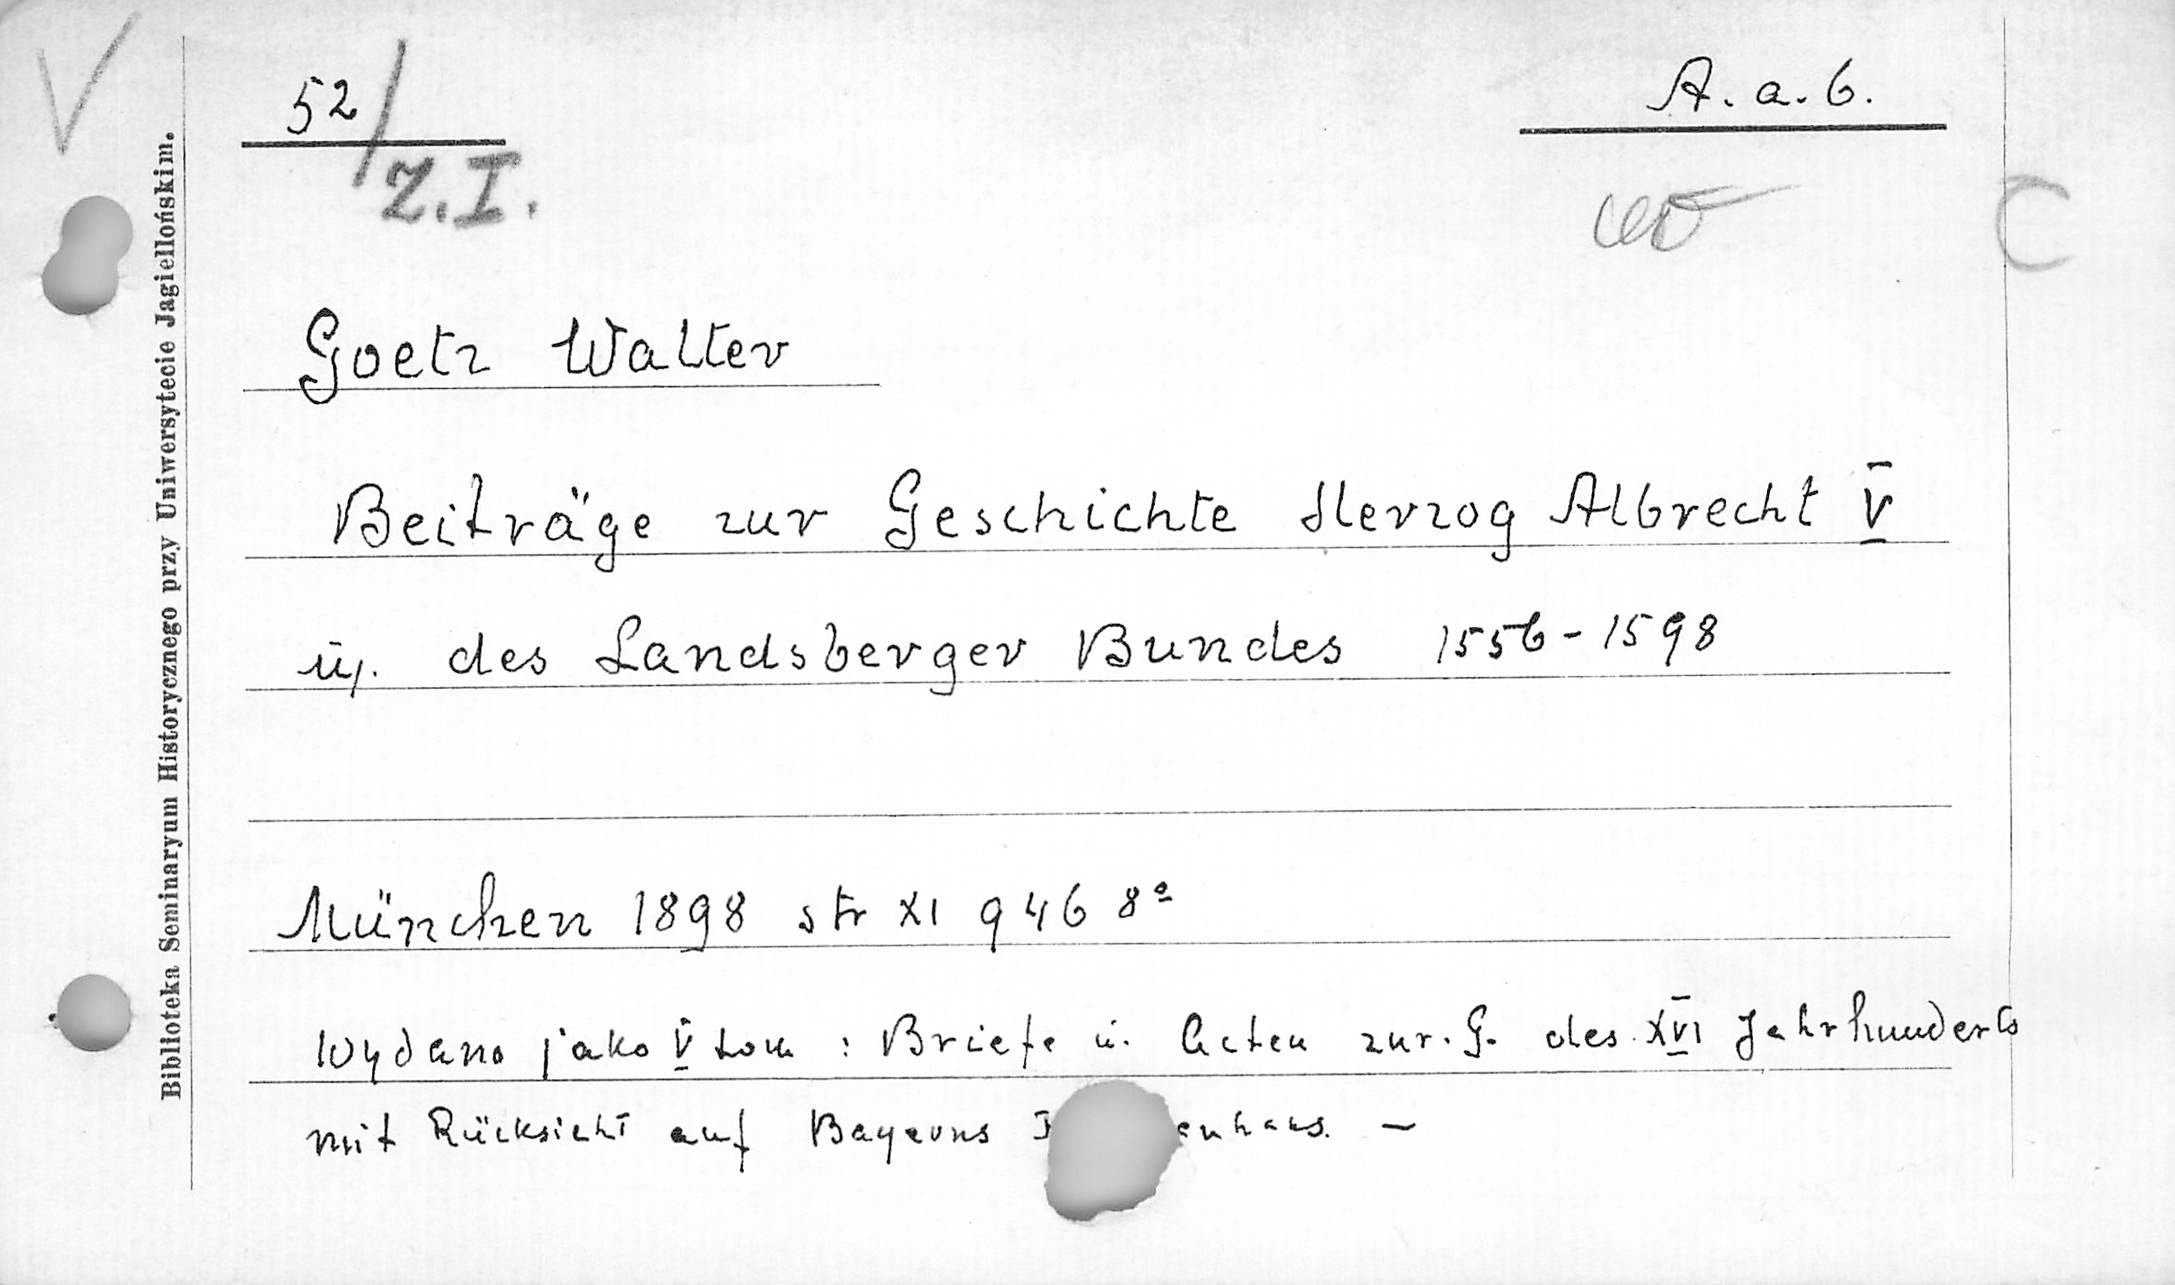 V
52/Z.I.
A. a. 6.
C
Goetz Walter
Beiträge zur Geschichte Herzog Albrecht V
u. des Landsberger Bundes 1556-1598
München 1898 str XI 946 8º
Wydano jako V tom : Briefe u. Acten zur. G. des XVI Jahrhunderts
mit Rücksicht auf Bayerns
Biblioteka Seminaryum Historycznego przy Uniwersytecie Jagiellońskim.